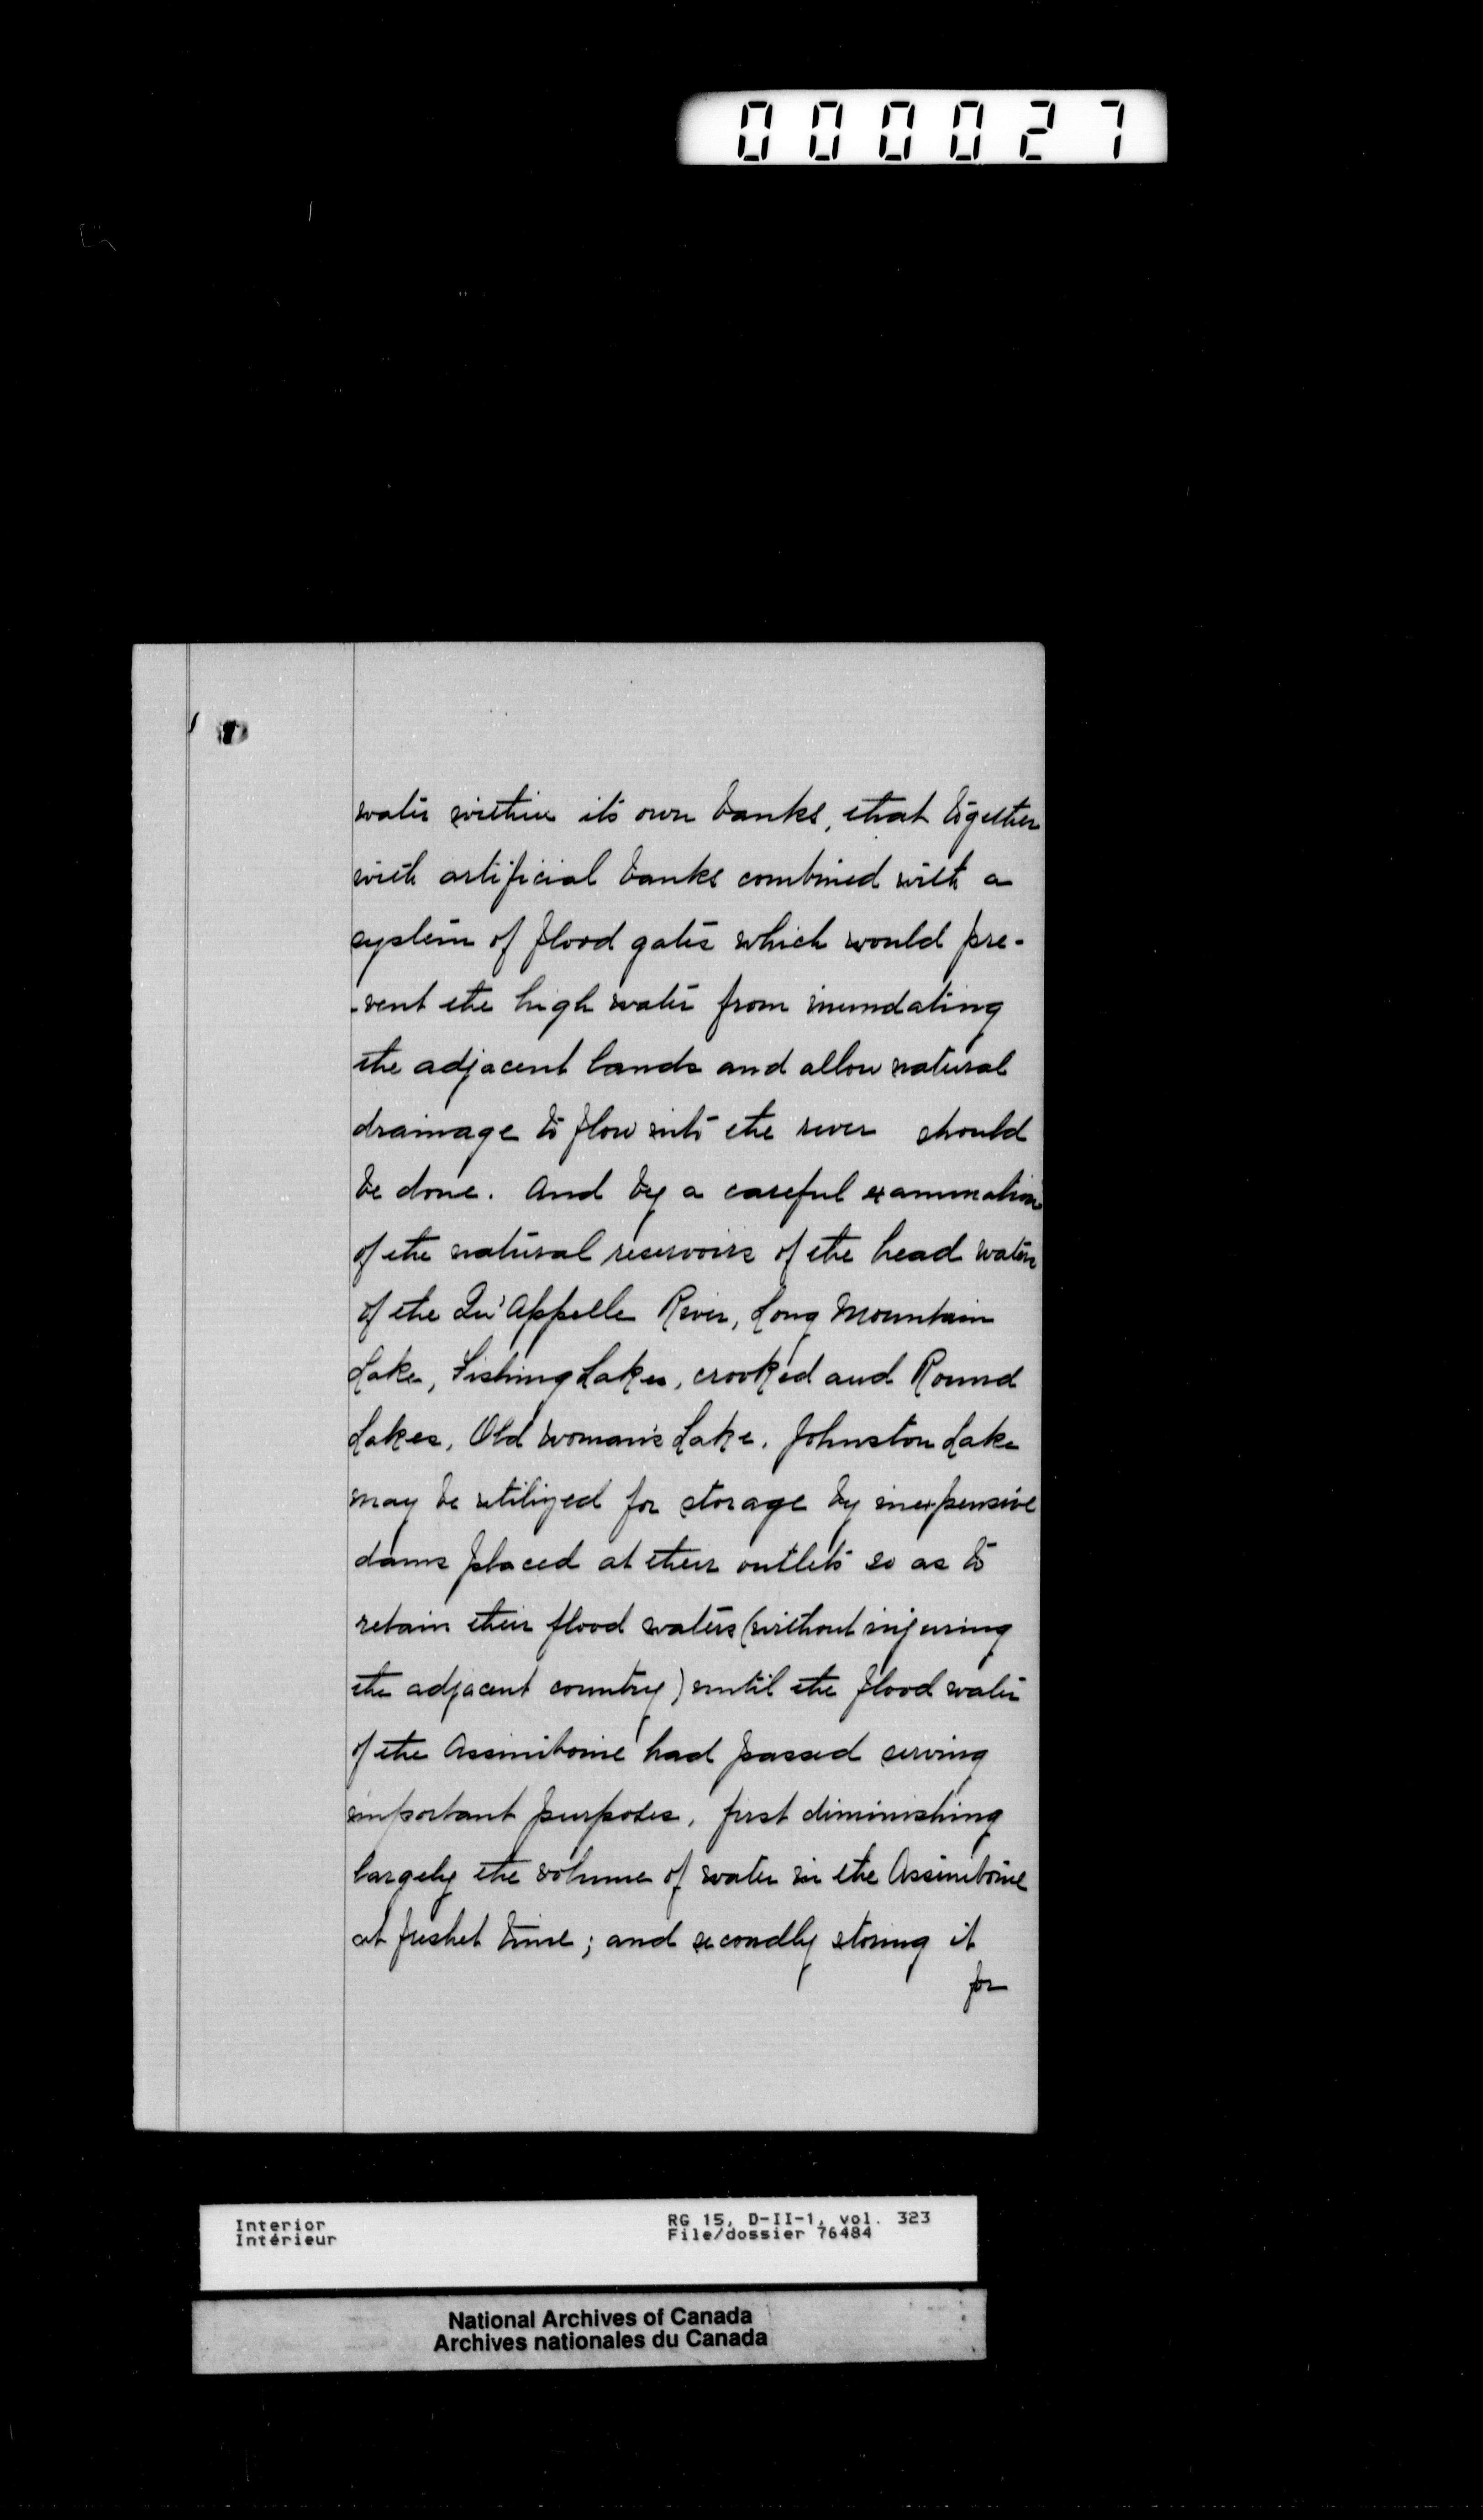 000027
water within its own banks, that together
with artificial banks combined with a
system of flood gates which would pre-
-vent the high water from inundating
the adjacent lands and allow natural
drainage to flow into the river should
be done. And by a careful examination
of the natural reservoirs of the head waters
of the Qu'Appelle River, Long Mountain
Lake, Fishing Lakes, crooked and Round
Lakes, Old Woman's Lake, Johnston Lake
may be utilized for storage by inexpensive
dams placed at their outlets so as to
retain their flood waters (without injuring
the adjacent country) until the flood water
of the Assiniboine had passed serving
important purposes, first diminishing
largely the volume of water in the Assiniboine
at freshet time; and secondly storing it
for
Interior RG 15, D-II-1, vol. 323
Intérieur File/dossier 76484
National Archives of Canada
Archives nationales du Canada